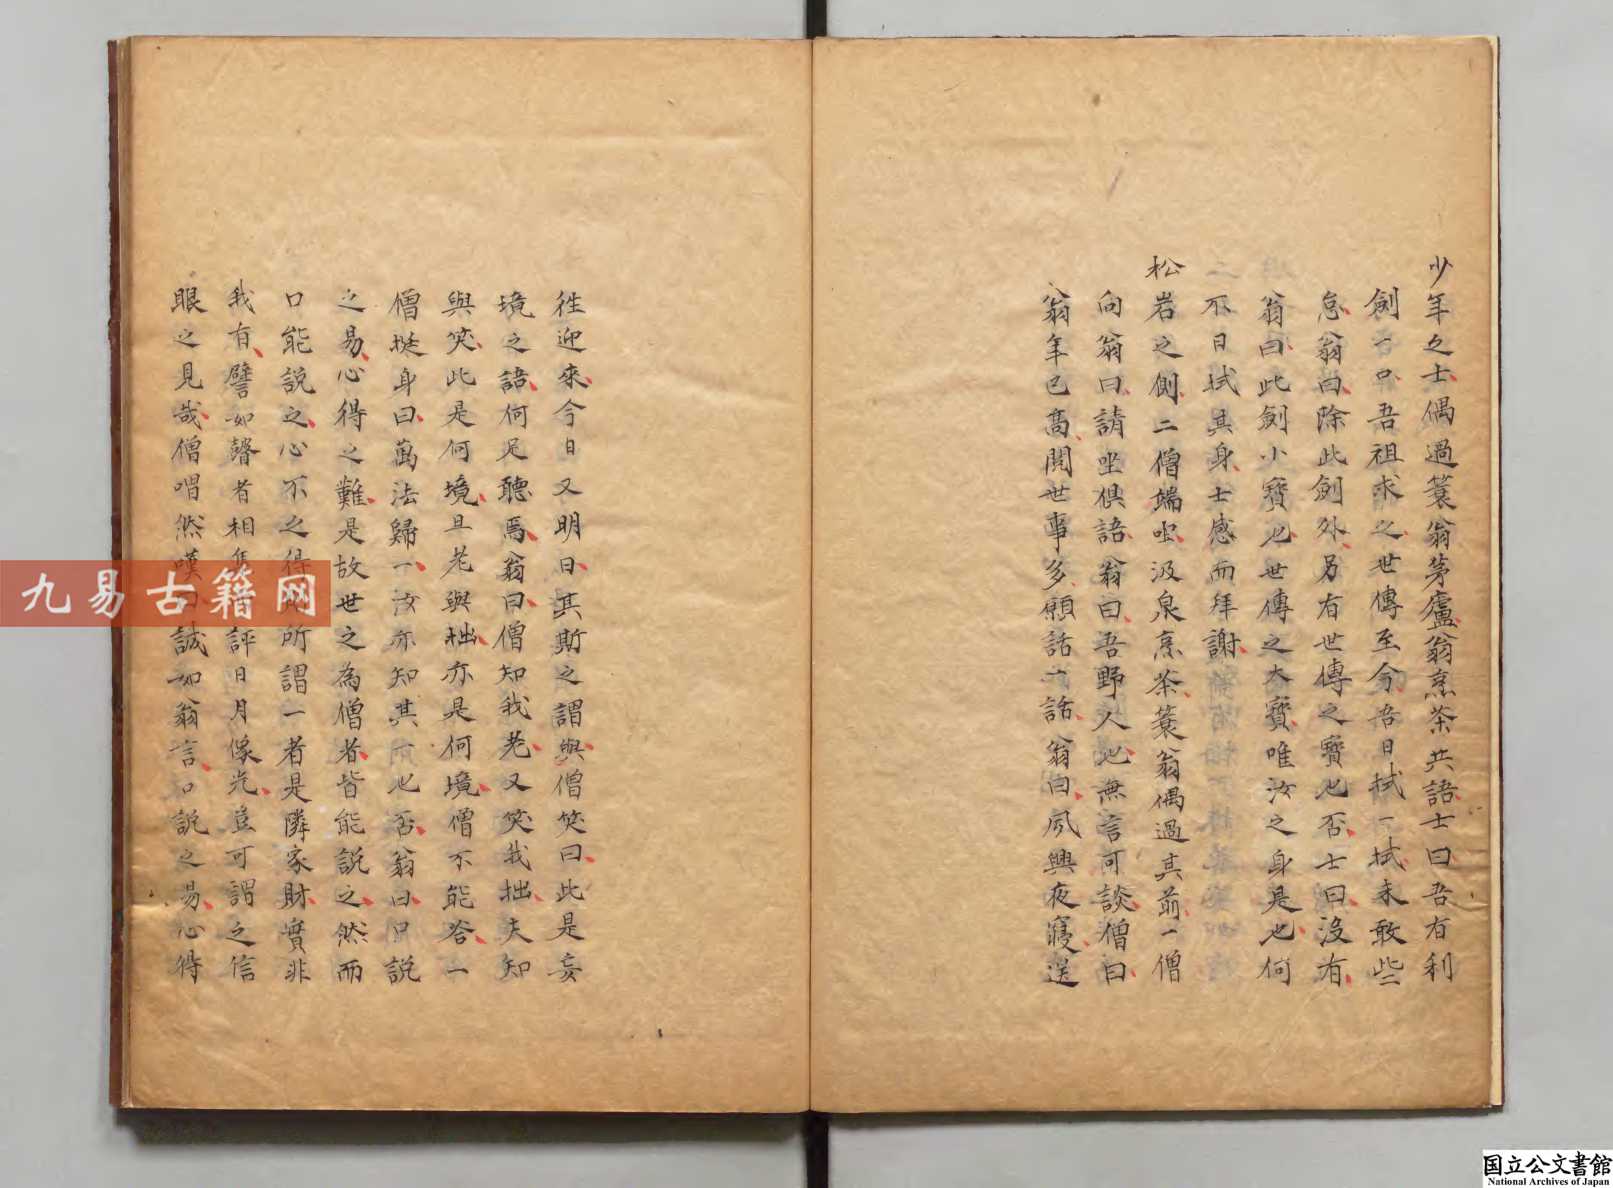 少年之士偶過簑翁茅廬翁烹茶共語士曰吾有利
劍一口吾祖求之世傳至今吾日拭一拭未敢些
怠翁曰除此劍外另有世傳之寶也否士曰沒有
翁曰此劍小寶也世傳之大寶唯汝之身是也何
不日拭其身士感而拜謝
松岩之側二僧端坐汲泉烹茶簑翁偶過其前一僧
向翁曰請坐俱語翁曰吾野人也無言可談僧曰
翁年已高閱世事多願話一話翁曰夙興夜寢送
往迎來今日又明日其斯之謂與僧笑曰此是妄
境之語何足聽焉翁曰僧知我老又笑我拙夫知
與笑此是何境且老與拙亦是何境僧不能答一
僧挺身曰萬法歸一汝亦知其所也否翁曰口說
之易心得之難是故世之為僧者皆能說之然而
口能說之心不之得所謂一者是隣家財實非
我有譬如瞽者相評日月像光豈可謂之信
眼之見哉僧喟然嘆曰誠如翁言口說之易心得
九易古籍网
国立公文書館
National Archives of Japan